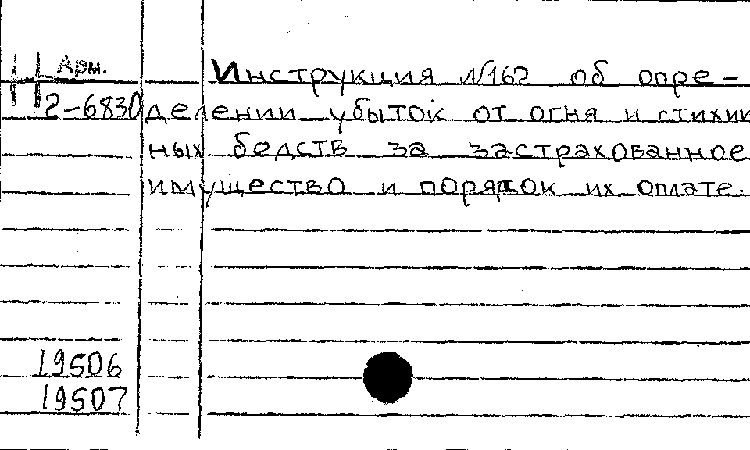 Арм.
Инструкция №162 об опре-
2-6830
делении убыток от огня и стихий
ных бедств за застрахованное
имущество и порядок их оплате.
19506
19507